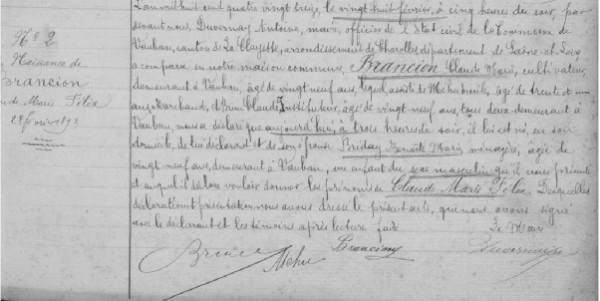 N° 2
Naissance de
Brancion
Claude Marie Félix
28 février 1893
L'an mil huit cent quatre vingt treize, le vingt huit février, à cinq heures du soir, par
devant nous Duvernay Antoine, maire, officier de l'état civil de la Commune de
Vauban, canton de La Clayette, arrondissement de Charolles département de Saône-et-Loire
a comparu en notre maison commune, Brancion Claude Marie, cultivateur,
demeurant à Vauban, âgé de vingt neuf ans, lequel, assisté de Méhu Benoît, âgé de trente et un
ans, et Brun Claude, Instituteur, âgé de vingt neuf ans, tous deux demeurant à
Vauban, nous a déclaré que aujourd'hui, à trois heures du soir, il lui est né, en son
domicile, de lui déclarant et de son épouse Briday Benoîte Marie ménagère, âgée de
vingt neuf ans, demeurant à Vauban, un enfant du sexe masculin qu'il nous présente
et auquel il déclare vouloir donner les prénoms de Claude Marie Félix. Desquelles
déclaration et présentation nous avons dressé le présent acte, que nous avons signé
avec le déclarant et les témoins après lecture faite
Le Maire
Brun Cl Méhu Brancion Duvernay